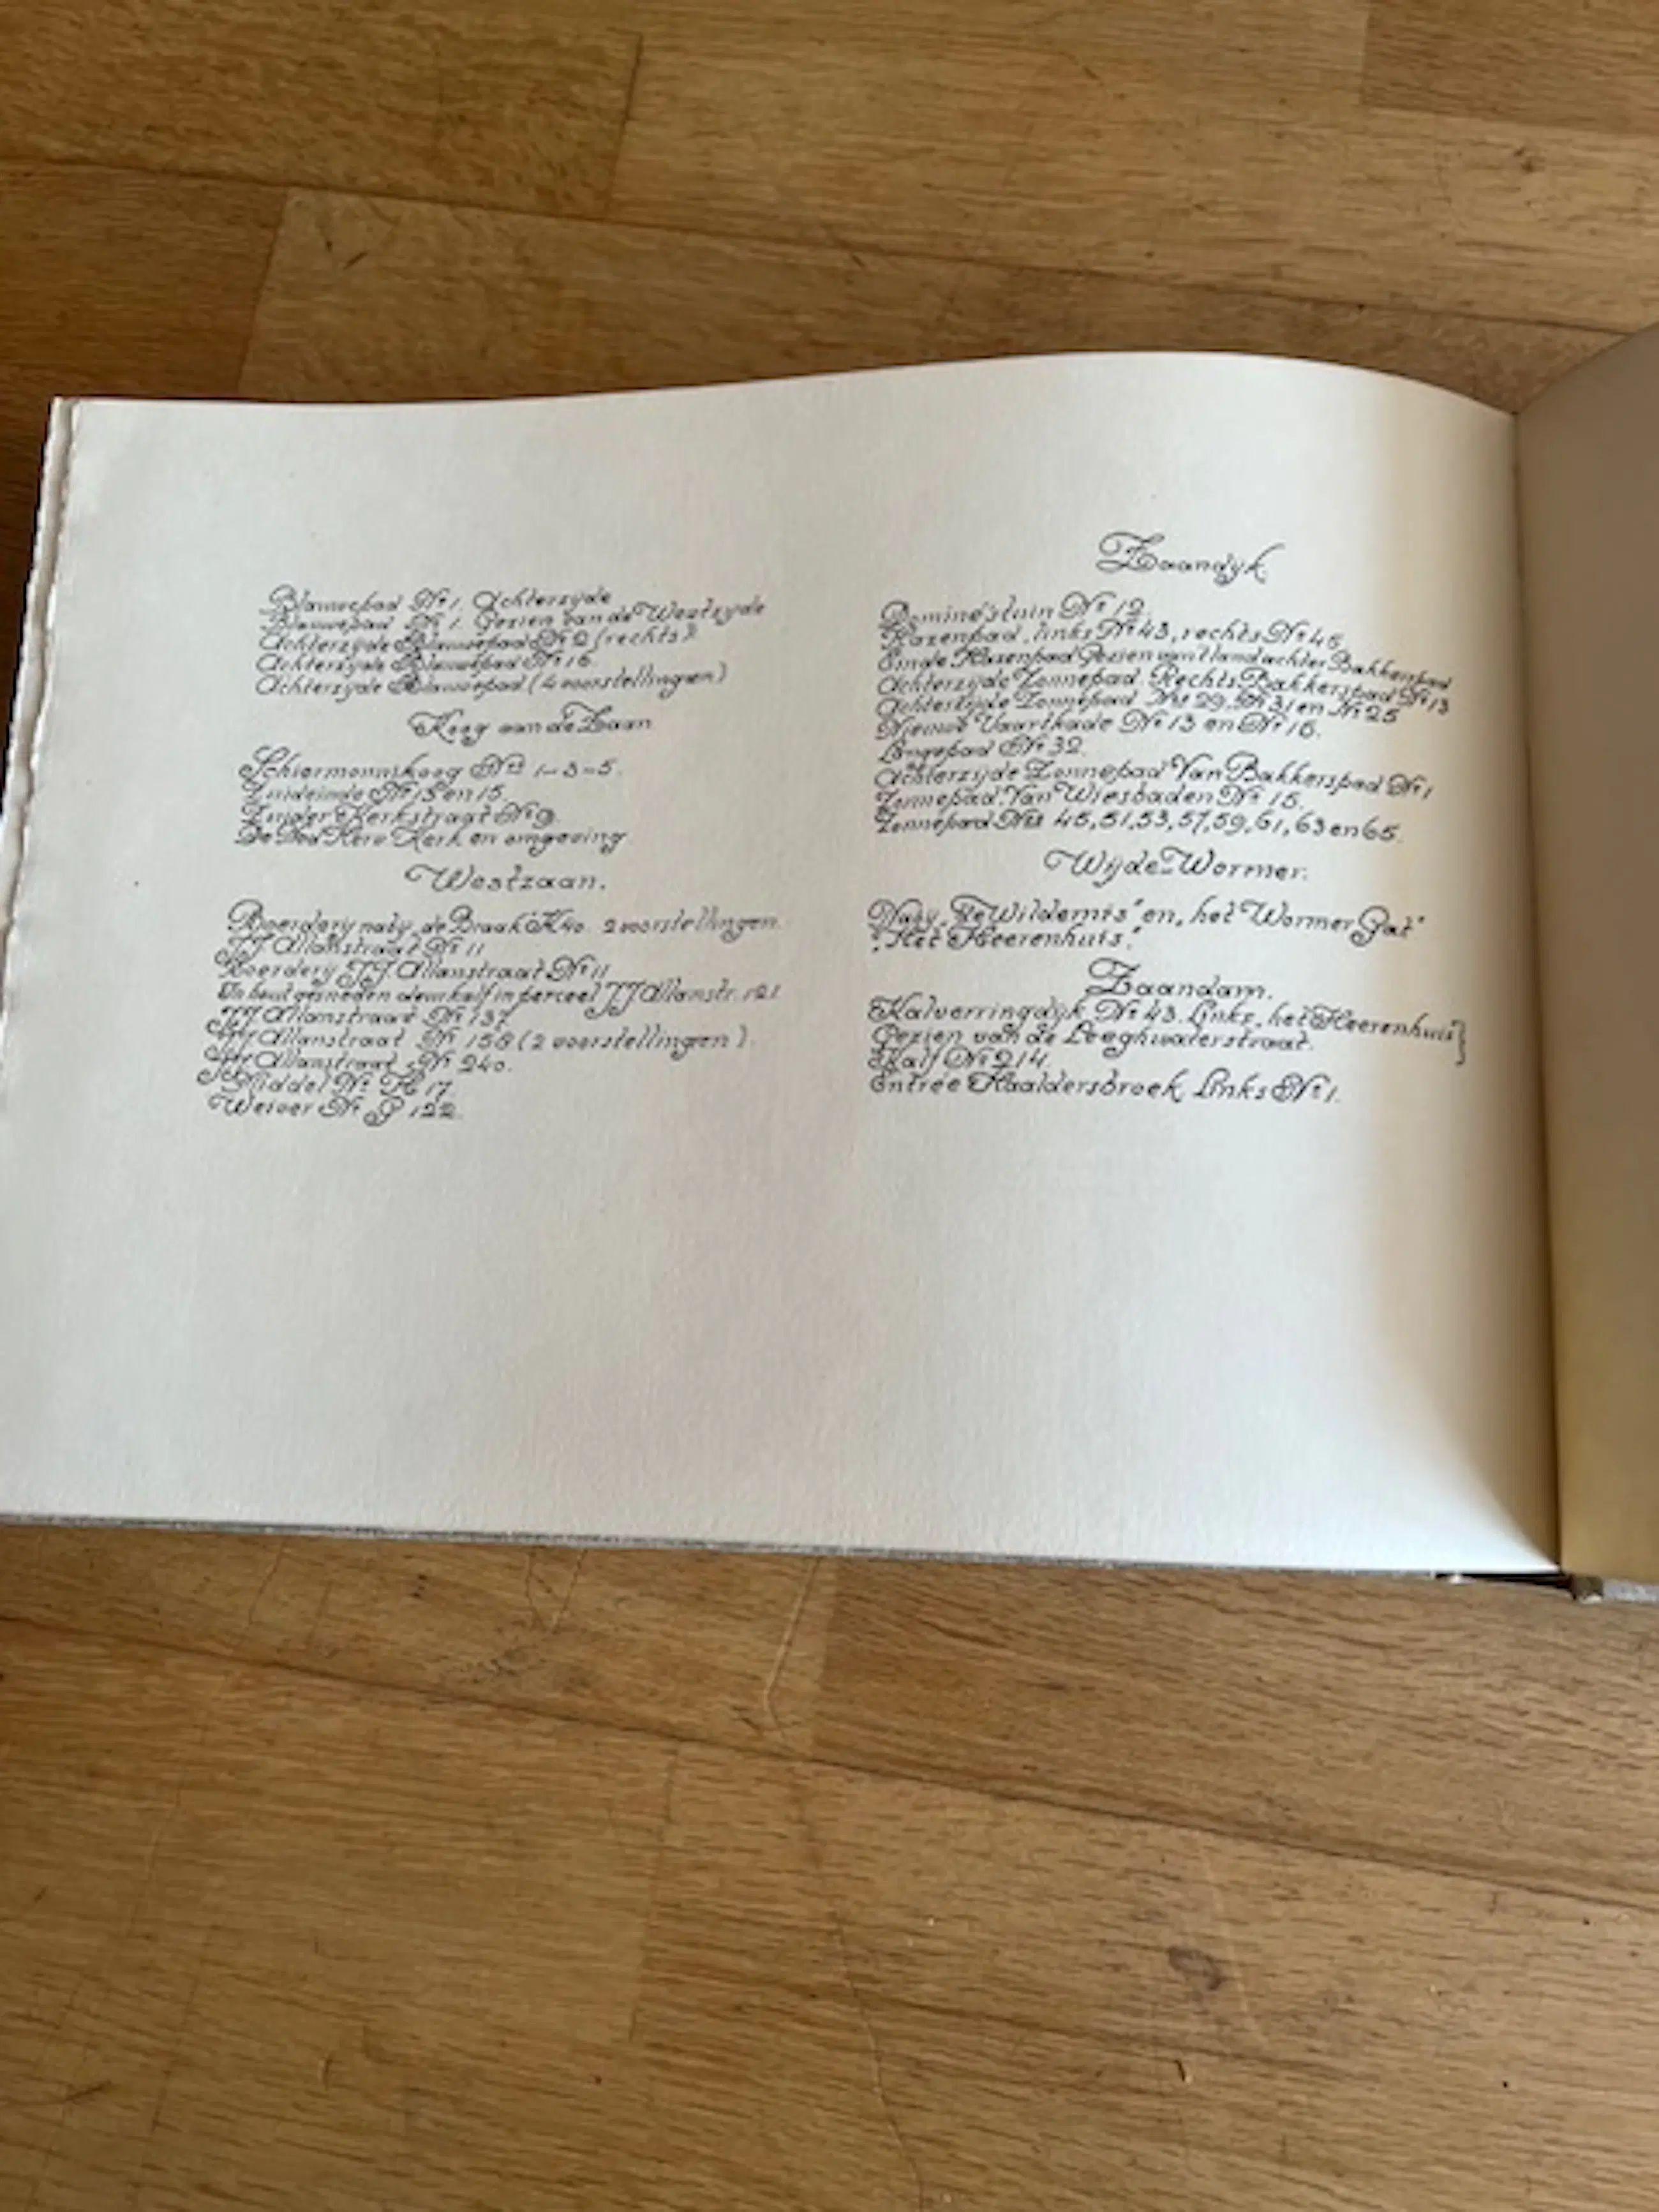 Blauwepad Nr 1. Achterzijde
Blauwepad Nr 1. Gezien van de Westzijde
Achterzijde Blauwepad Nr 2 (rechts)
Achterzijde Blauwepad Nr 16.
Achterzijde Blauwepad (4 voorstellingen)
Koog aan de Zaan
Schiermonnikoog Nrs 1-3-5.
Zuideinde Nr 13 en 15.
Zuider Kerkstraat Nr 9.
De Herv. Kerk en omgeving
Westzaan.
Boerderij nabij „de Braak" K40. 2 voorstellingen.
J.J. Allanstraat Nr 11
Boerderij J.J. Allanstraat Nr 11
In hout gesneden deurkalf in perceel J.J. Allanstr. 121
J.J. Allanstraat Nr 137
J.J. Allanstraat Nr 158 (2 voorstellingen).
J.J. Allanstraat Nr 240.
Middel Nr H 17
Weiver Nr G 122.
Zaandyk.
Dominéstuin Nr 12.
Hazenpad, links Nr 43, rechts Nr 46.
Einde Hazenpad Gezien van't land achter Bakkerspad
Achterzijde Zonnepad. Rechts Bakkerspad Nr 13
Achterzijde Zonnepad Nrs 29, Nr 31 en Nr 25
Nieuwe Vaartkade Nr 13 en Nr 15.
Langepad Nr 32.
Achterzijde Zonnepad Van Bakkerspad Nr 1
Zonnepad. Van Wiesbaden Nr 15.
Zonnepad Nrs 45, 51, 53, 57, 59, 61, 63 en 65.
Wijde-Wormer.
Nabij „de Wildernis" en „het Wormer Gat"
„Het Heerenhuis."
Zaandam.
Kalverringdijk Nr 43. Links „het Heerenhuis"}
Gezien van de Leeghwaterstraat.
Kalf Nr 214.
Entrée Haaldersbroek Links Nr 1.